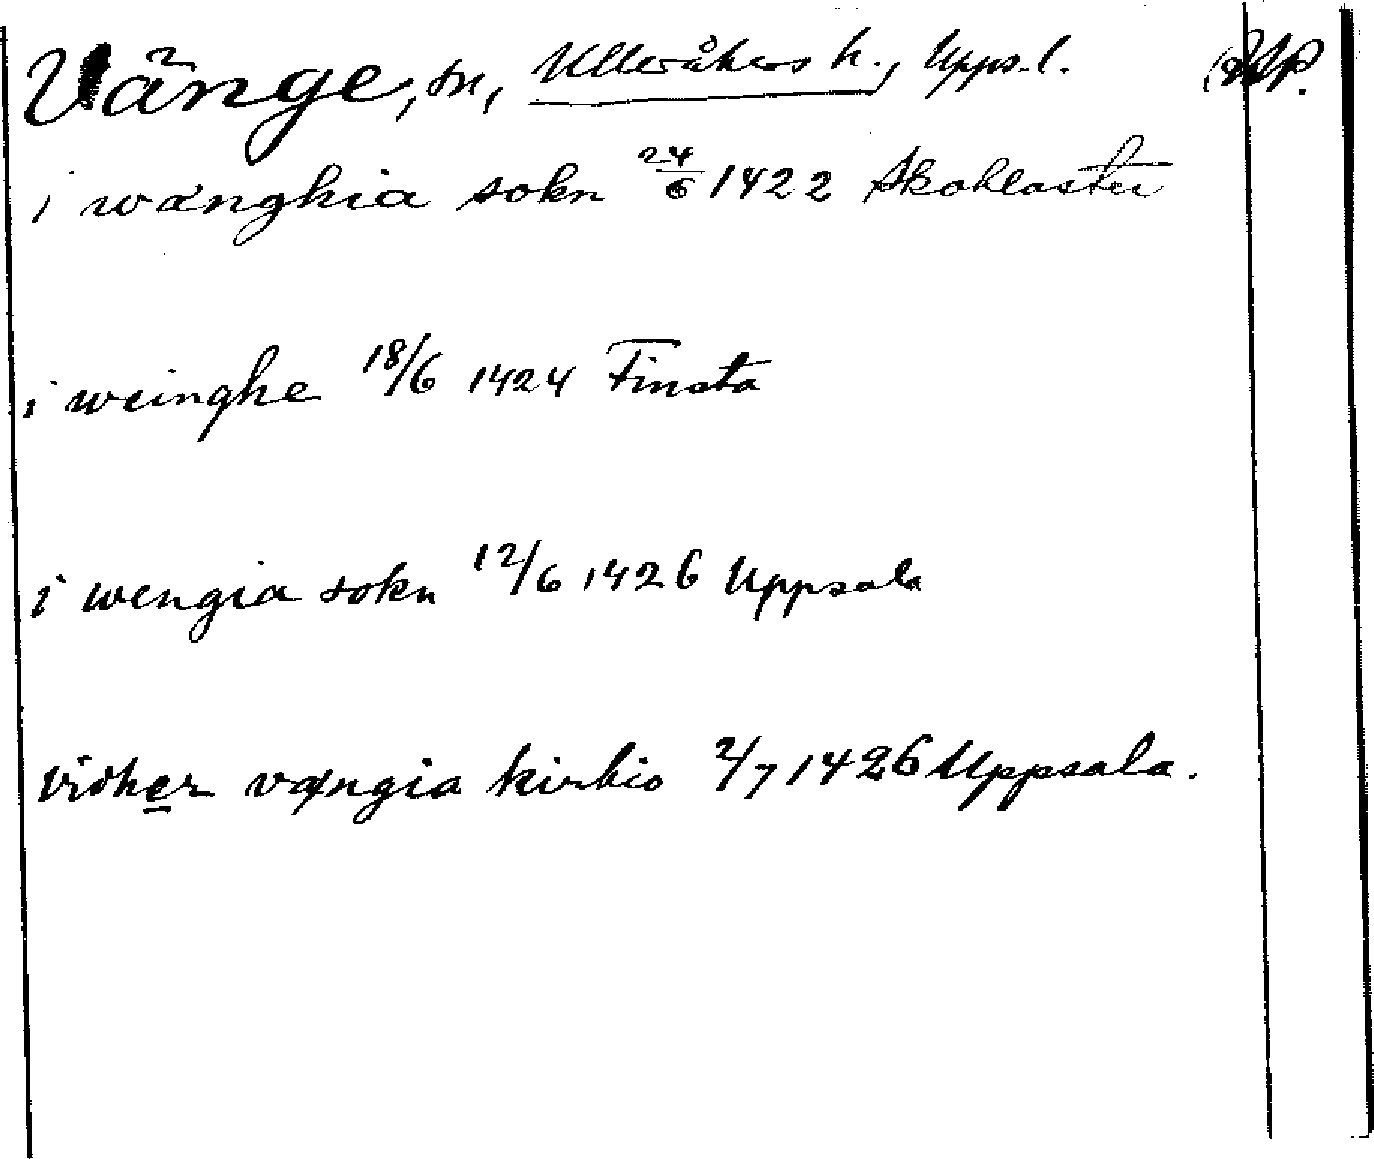 Vänge, sn, Ulleråkers h., Upps. l.
i wænghia sokn 24/6 1422 Skokloster
i weinghe 18/6 1424 Finsta
i wengia sokn 12/6 1426 Uppsala
vidher vængia kirkio 2/7 1426 Uppsala.